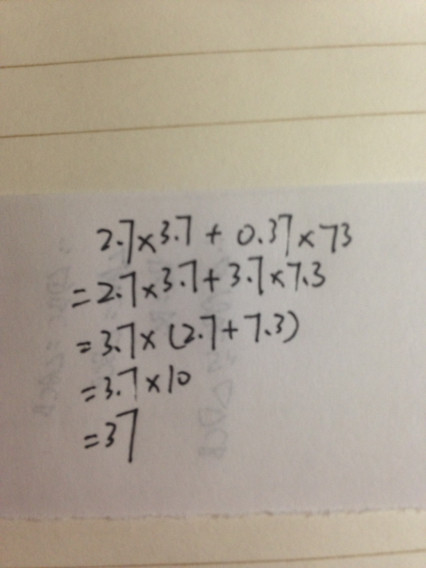 2.7×3.7+0.37×73
=2.7×3.7+3.7×7.3
=3.7×(2.7+7.3)
=3.7×10
=37